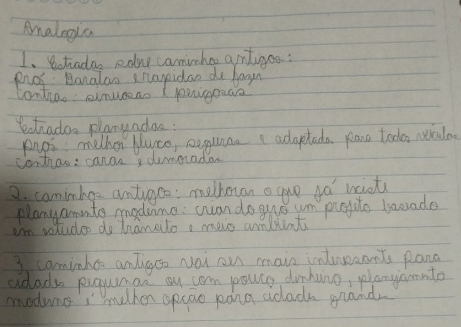 Analogia
1. Estradas sobre caminhos antigos:
Prós: Baratas e rapidas de fazer
Contras: sinuosas e perigosas
Estradas planejadas:
prós: melhor fluxo, seguras e adaptada para todos veículos
contras: caras e demoradas
2. caminhos antigos: melhorar o que já existe
planejamento moderno: criar do zero um projeto baseado
em estudo de trânsito e meio ambiente
3, caminhos antigos vai ser mais interessante para
cidades pequenas ou com pouco dinheiro, planejamento
moderno é melhor opção para cidades grandes